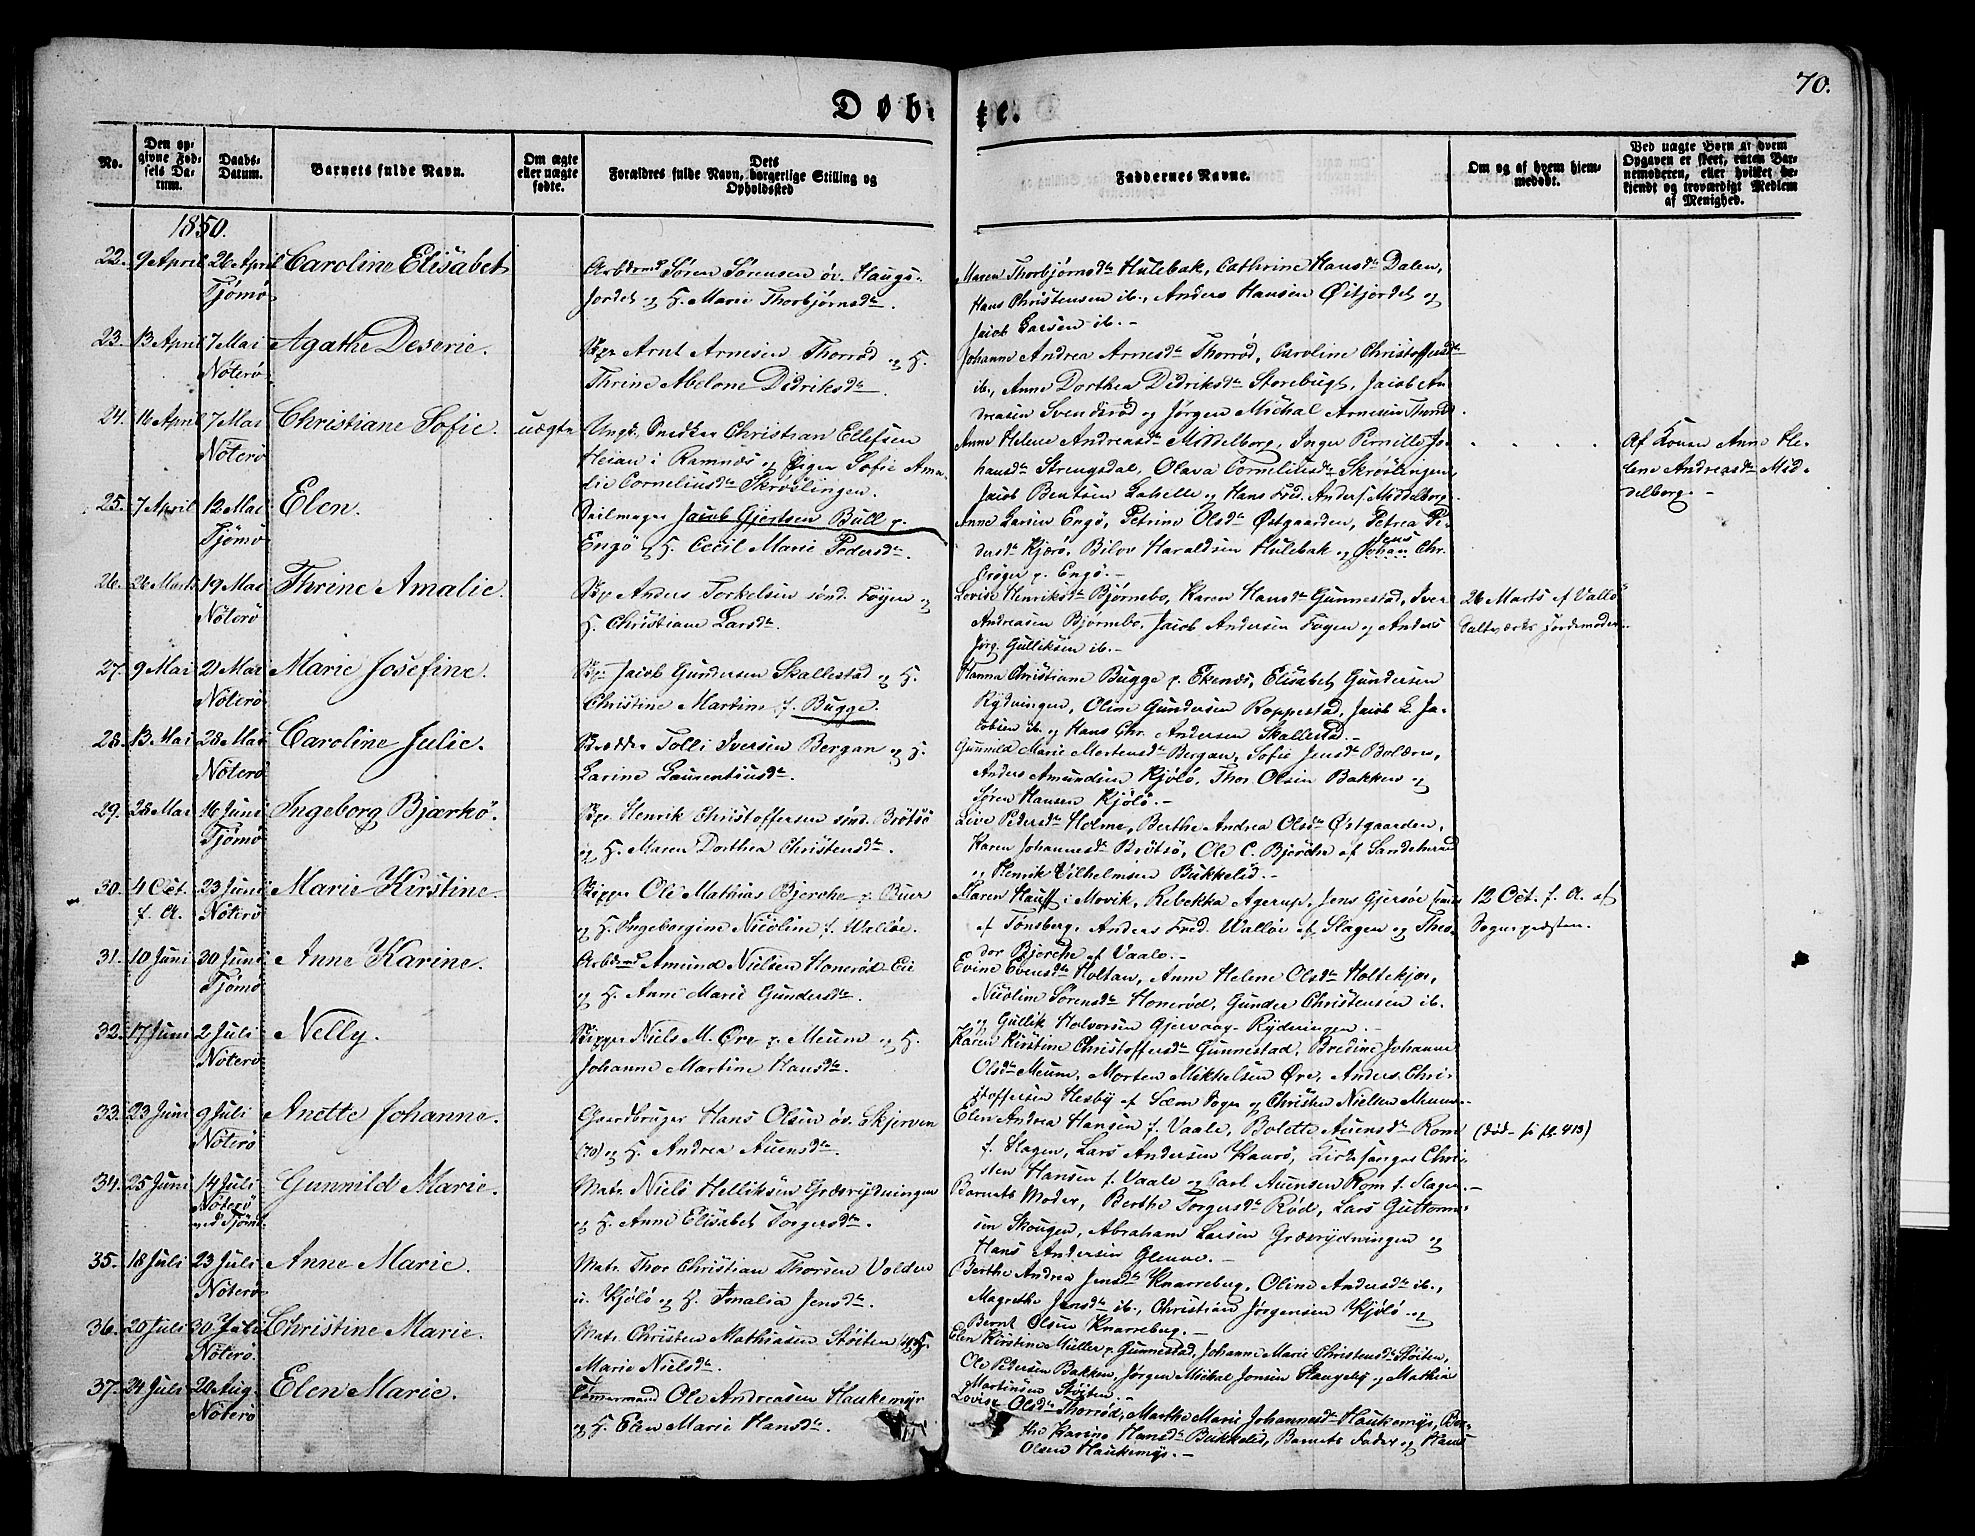 70.
Døbte.
No.
Den opgivne Fødsels Datum.
Daabs-Datum.
Barnets fulde Navn.
Om ægte eller uægte fødte.
Dets Forældres fulde Navn, borgerlige Stilling og Opholdssted
Faddernes Navne.
Om og af hvem hjemmedøbt.
Ved uægte Børn af hvem Opgaven er skeet, enten Barnemoderen, eller hvilket bekjendt og troværdigt Medlem af Menighed.
1850.
22. 9 April 26 April Caroline Elisabet
Tjømø
Arbdsmd Søren Sørensen öv. Haugs-
jordet og H. Marie Thorbjørnsdtr.
Maren Thorbjørnsdtr Hulebak, Cathrine Hansdtr Dalen,
Hans Christensen ib., Anders Hansen Østjordet og
Jacob Larsen ib.-
23. 13 April 7 Mai Agathe Deserie.
Nöterö
Skpr Arnt Arnesen Thorröd og H.
Thrine Abelone Didriksdtr.
Johanne Andrea Arnesdtr Thorröd, Caroline Christoffersdtr
ib., Anne Dorthea Didriksdtr Storebugt, Jacob An-
dreasen Svendsröd og Jørgen Michal Arnesen Thorröd.
24. 16 April 7 Mai Christiane Sofie. uægte
Nöterö
Ungk. Snedker Christian Ellefsen
Heian i Ramnæs og Pigen Sofie Ama-
lie Corneliusdtr Skröslingen.
Anne Helene Andreasdtr Middelborg, Inger Pernille Jo-
hansdtr Strengsdal, Olava Corneliusdtr Skröslingen,
Jacob Bentsen Lahelle og Hans Fred. Anders. Middelborg.
Af Konen Anne He-
lene Andreasdtr Mid-
delborg.-
25. 7 April 12 Mai Elen.
Tjømø
Seilmager Jacob Gjertsen Bull p.
Engö og H. Cecil Marie Pedersdtr.
Anne Larsen Engö, Petrine Olsdtr Østgaarden, Petrea Pe-
dersdtr Kjærö, Bilov Haraldsen Hulebak og Johan Chr.
Jens
Cröger p. Engö.-
26. 26 Marts 19 Mai Thrine Amalie.
Nöterö
Skp. Anders Torkelsen sönd. Föyen og
H. Christiane Larsdtr.
Lovise Henriksdtr Bjørnebo, Karen Hansdtr Gunnestad, Iver
Andreasen Bjørnebo, Jacob Andersen Föyen og Anders
Jörg. Gulliksen ib.-
26 Marts af Vallö
Saltværks Jordemoder.-
27. 9 Mai 21 Mai Marie Josefine.
Nöterö
Skp. Jacob Gundersen Skallestad og H.
Christine Martine f. Bugge.
Hanna Christiane Bugge p. Ekenæs, Elisabet Gundersen
Rydningen, Oline Gundersen Roppestad, Jacob L. Ja-
cobsen ib. og Hans Chr. Andersen Skallestad.-
28. 13 Mai 28 Mai Caroline Julie.
Nöterö
Brædder Tolli Iversen Bergan og H.
Larine Laurentiusdtr.
Gunnild Marie Mortensdtr Bergan, Sofie Jensdtr Bolærne,
Anders Amundsen Kjölö, Thor Olsen Bakken og
Sören Hansen Kjölö.-
29. 28 Mai 16 Juni Ingeborg Bjærkö.
Tjømø
Skpr Henrik Christoffersen sönd. Brötsö
og H. Maren Dorthea Christensdtr.
Live Pedersdtr Holme, Berthe Andrea Olsdtr Østgaarden,
Karen Johannesdtr Brötsö, Ole C. Bjerche af Sandesund
og Henrik Vilhelmsen Bukkelid.-
30. 4 Oct. 23 Juni Marie Kirstine.
f. A. Nöterö
Skipper Ole Mathias Bjerche p. Buer
og H. Ingeborgine Nicoline f. Wallöe.
Karen Hauff i Movik, Rebekka Agerup, Jens Gjersöe
af Tönsberg, Anders Fred. Wallöe af Slagen og Theo-
dor Bjerche af Vaale.-
12 Oct. f. A. af
Sognepræsten.
31. 10 Juni 30 Juni Anne Karine.
Tjømø
Arbdsmd Amund Nielsen Honeröd Eie
og H. Anne Marie Gundersdtr.
Evine Evensdtr Holtan, Anne Helene Olsdtr Holtekjær,
Nicoline Sörensdtr Honeröd, Gunder Christensen ib.
og Gullik Halvorsen Gjervaag-Rydningen.-
32. 17 Juni 2 Juli Nelly.
Nöterö
Skipper Niels M. Øre p. Meum og H.
Johanne Martine Hansdtr.
Karen Kirstine Christoffersdtr Gunnestad, Bredine Johanne
Olsdtr Meum, Morten Mikkelsen Øre, Anders Chri-
stoffersen Hesby af Sæm Sogn og Christen Nielsen Meum.-
33. 23 Juni 9 Juli Anette Johanne.
Nöterö
Gaardbruger Hans Olsen öv. Skjerven
(70) og H. Andrea Auensdtr.
Elen Andrea Hansen f. Vaale, Bolette Auensdtr Rom
f. Slagen, Lars Andersen Kaarö, Kirkesanger Chri-
sten Hansen f. Vaale og Carl Auensen Rom f. Slagen.-
(död- se pg. 413)
34. 25 Juni 14 Juli Gunnild Marie.
Nöterö
ved Tjømø
Matr. Niels Helliksen Græsrydningen
og H. Anne Elisabet Torgersdtr.
Barnets Moder, Berthe Torgersdtr Röd, Lars Guttorm-
sen Skougen, Abraham Larsen Græsrydningen og
Hans Andersen Glenne.-
35. 18 Juli 23 Juli Anne Marie.
Nöterö
Matr. Thor Christian Thorsen Volden
u. Kjölö og H. Amalia Jensdtr.
Berthe Andrea Jensdtr Knarreberg, Oline Andersdtr ib.,
Magrethe Jensdtr ib., Christian Jörgensen Kjölö og
Bernt Olsen Knarreberg.-
36. 20 Juli 30 Juli Christine Marie.
Nöterö
Matr. Christen Mathiasen Stöiten og H.
Marie Nielsdtr.
Elen Kirstine Müller p. Gunnestad, Johanne Marie Christensdtr Stöiten,
Ole Pedersen Bakken, Jörgen Michel Jonsen Haugeby og Mathias
Martinsen Stöiten.-
37. 24 Juli 20 Aug. Elen Marie.
Nöterö
Tömmermand Ole Andreasen Haukemyr
og H. Elen Marie Hansdtr.
Lovise Olsdtr Thorröd, Marthe Marie Johannesdtr Haukemyr, Ber-
the Karine Hansdtr Bukkelid, Barnets Fader og Hans
Olsen Haukemyr.-